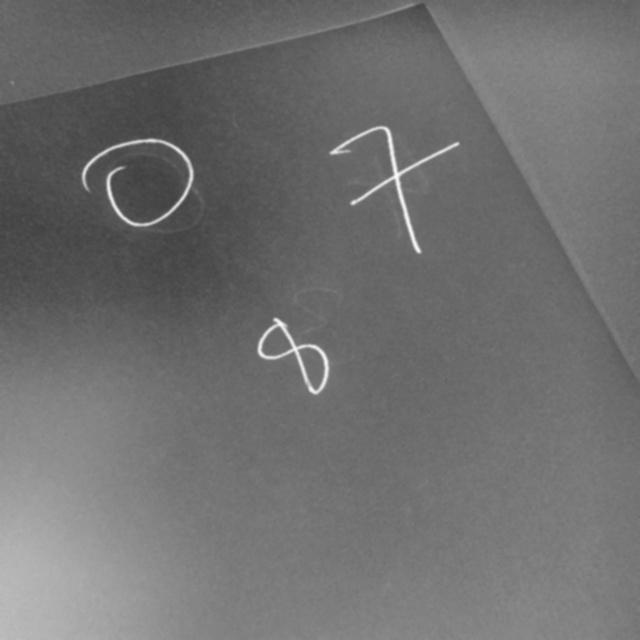 0 7
8